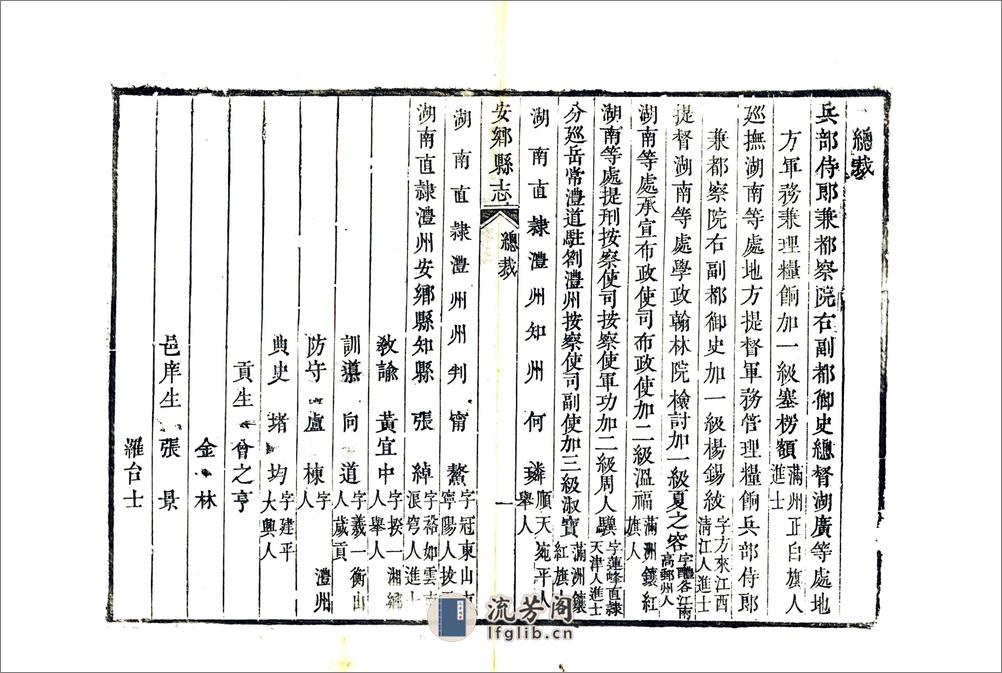 總裁
兵部侍郎兼都察院右副都御史總督湖廣等處地
方軍務兼理糧餉加一級塞楞額滿州正白旗人進士
廵撫湖南等處地方提督軍務管理糧餉兵部侍郎
兼都察院右副都御史加一級楊錫紱字方來江西清江人進士
提督湖南等處學政翰林院檢討加一級夏之容字醴谷江南高郵州人
湖南等處承宣布政使司布政使加二級溫福滿洲鑲紅旗人
湖南等處提刑按察使司按察使軍功加二級周人驥字蓮峰直隸天津人進士
分廵岳常澧道駐劄澧州按察使司副使加三級淑寶滿洲鑲紅旗
湖南直隸澧州知州何璘順天宛平人舉人
安鄉縣志
總裁
一
湖南直隸澧州州判甯鰲字冠東山東寧陽人拔
湖南直隸澧州安鄉縣知縣張綽字裕如雲南浪穹人進士
教諭黃宜中字揆一湘鄉人舉人
訓導向道字義一衡山人歲貢
防守盧棟字 澧州人
典史堵均字建平大興人
貢生會之亨
金林
邑庠生張景
羅台士
流芳阁
lfglib.cn